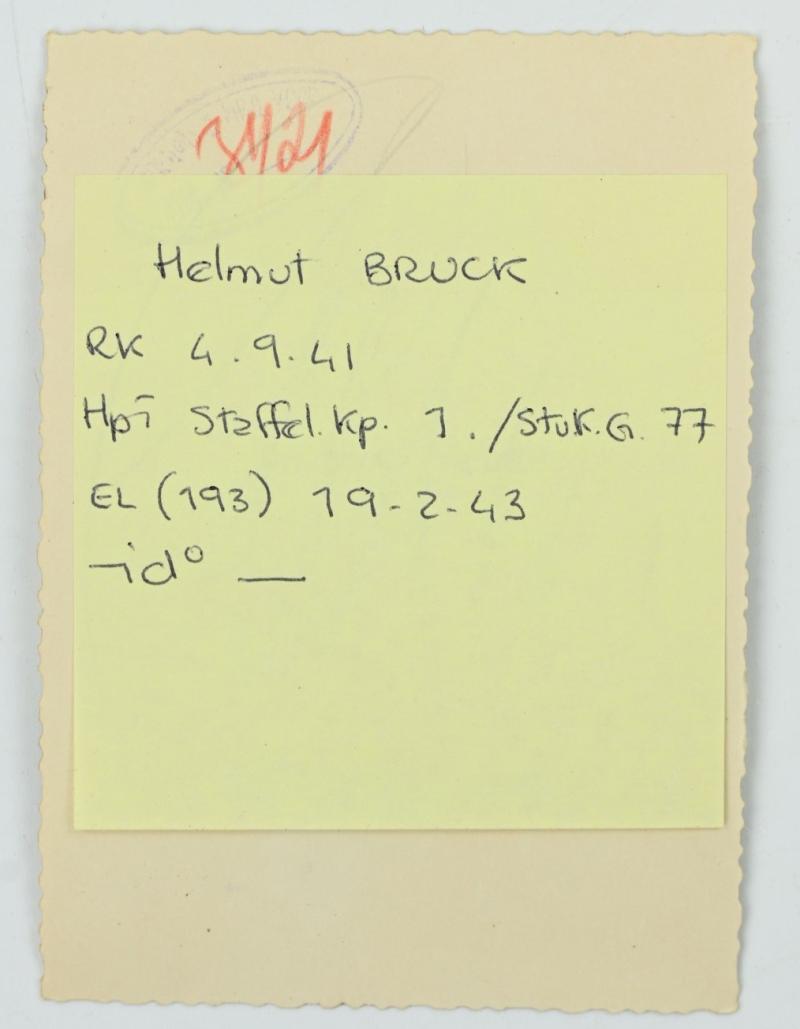 3421
Helmut BRUCK
RK 4.9.41
Hpt Staffel.Kp. 1./Stuk.G. 77
EL (193) 19-2-43
id° —